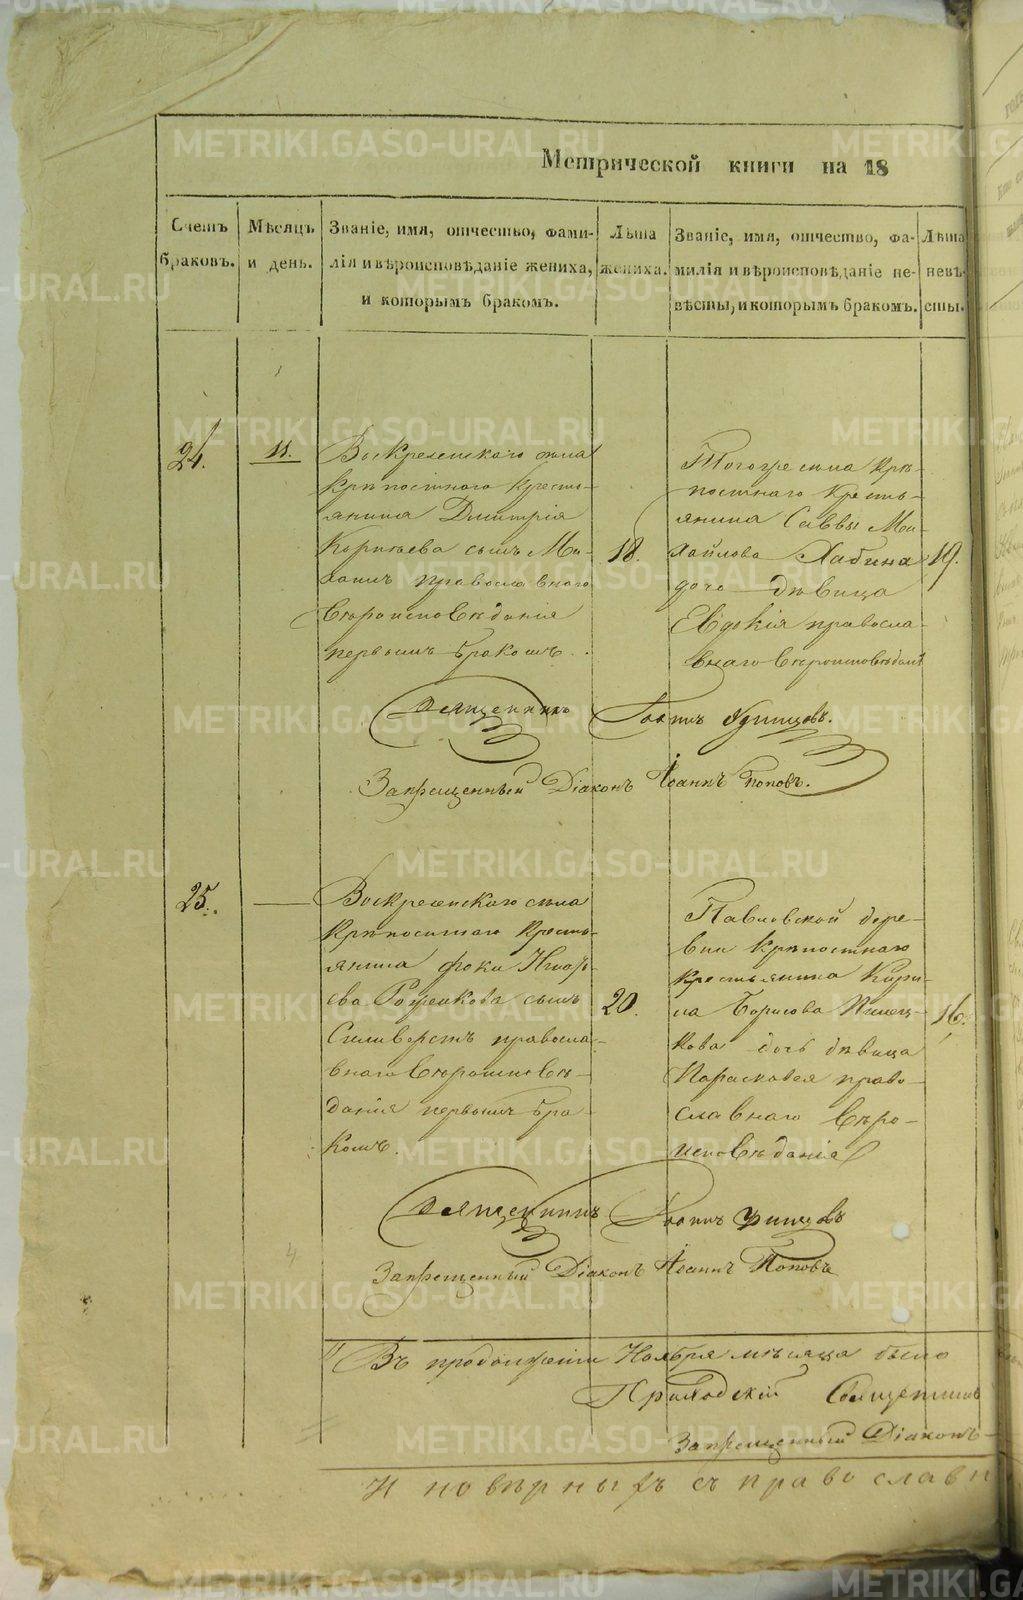 Метрической книги на 18
Счетъ браковъ.
Мѣсяцъ и день.
Званіе, имя, отчество, фами-
лія и вѣроисповѣданіе жениха,
и которымъ бракомъ.
Лѣта жениха.
Званіе, имя, отчество, фа-
милія и вѣроисповѣданіе не-
вѣсты, и которымъ бракомъ.
Лѣта невѣ-
сты.
24.
11.
Воскресенскаго села
крѣпостнаго кресть-
янина Димитрія
сынъ Ми-
хаилъ православнаго
вѣроисповѣданія
первымъ бракомъ.
18.
Тогоже села крѣ-
постнаго кресть-
янина Саввы Ми-
хайлова
дочь дѣвица
Евдокія правосла-
внаго вѣроисповѣданія
19.
Священникъ Іоаннъ
Запрещенный Діаконъ Іоаннъ Поповъ.
25.
Воскресенскаго села
крѣпостнаго кресть-
янина Фоки
сынъ
Силиверстъ правосла-
внаго вѣроисповѣ-
данія первымъ бра-
комъ.
20.
Павловской дере-
вни крѣпостнаго
крестьянина Кири-
ла Борисова
дочь дѣвица
Парасковея право-
славнаго вѣро-
исповѣданія
16.
Священникъ Іоаннъ
Запрещенный Діаконъ Іоаннъ Поповъ
Въ продолженіи Ноября мѣсяца было
Приходскій Священникъ
Запрещенный Діаконъ
Иновѣрныхъ съ православн
METRIKI.GASO-URAL.RU